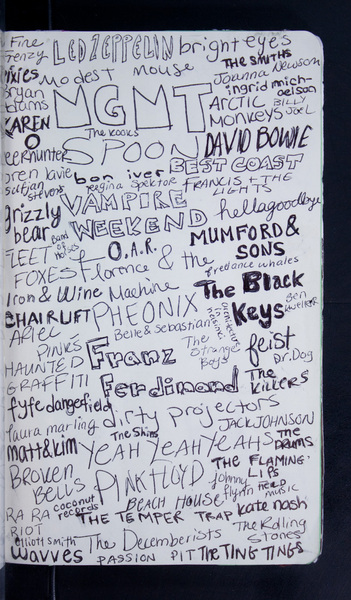 Fine
Frenzy
LED ZEPPELIN
bright eyes
Pixies
MODEST MOUSE
THE SMITHS
Joanna Newsom
Bryan
Adams
MGMT
ingrid mich-
aelson
ARCTIC
MONKEYS
BILLY
JOEL
KAREN
O
The Kooks
SPOON
DAVID BOWIE
Deerhunter
BEST COAST
bon iver
sufjan
stevens
regina spektor
FRANCIS + THE
LIGHTS
VAMPIRE
WEEKEND
hellogoodbye
grizzly
bear
Band
of
Horses
O.A.R.
MUMFORD &
SONS
FLEET
FOXES
Florence & the
Machine
freelance whales
Iron & Wine
The Black
Keys
Ben
Kweller
CHAIRLIFT
PHEONIX
architecture
in
helsinki
ARIEL
PINK'S
HAUNTED
GRAFFITI
Belle & Sebastian
Franz
Ferdinand
The
Strange
Boys
feist
Dr. Dog
The
Killers
fyfe dangerfield
dirty projectors
laura marling
JACK JOHNSON
matt & kim
The Shins
YEAH YEAH YEAHS
THE
DRUMS
Broken
Bells
PINK FLOYD
THE FLAMING
LIPS
Johnny
flynn
Head
music
RA RA
RIOT
coconut
records
BEACH HOUSE
THE TEMPER TRAP
kate nash
elliott smith
The Decemberists
The Rolling
Stones
wavves
PASSION PIT
THE TING TINGS